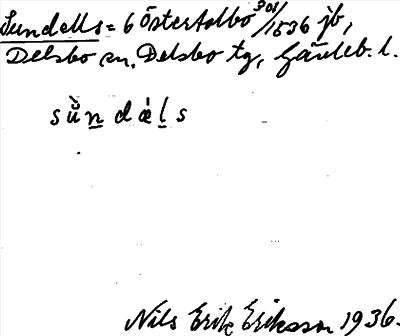 Sundells = 6 Östertolbo 301/1536 jb,
Delsbo sn. Delsbo tg, Gävleb. l.
sùndǽls
Nils Erik Eriksson 1936.